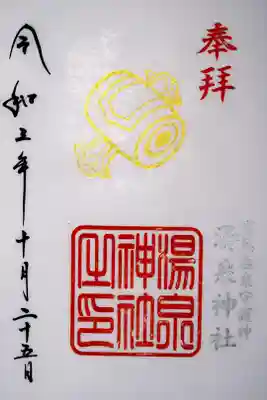 奉拝
湯泉神社
湯泉
神社
之印
令和五年十月二十五日